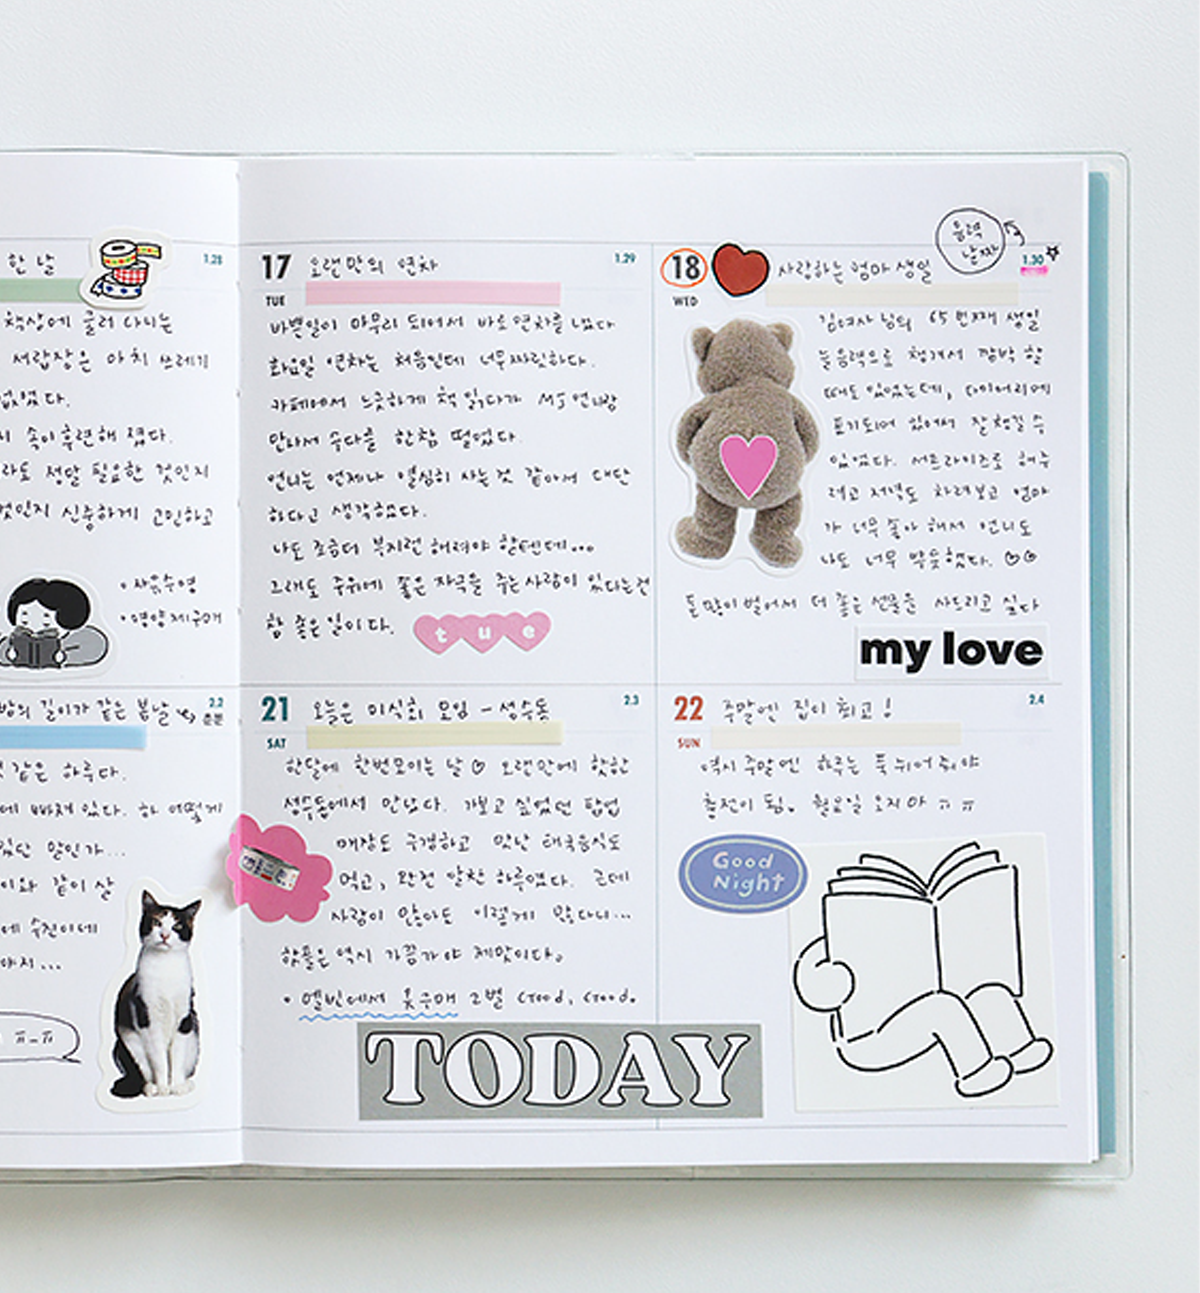 한 날
1.28
책상에 굴러 다니는
서랍장은 마치 쓰레기
없었다.
속이 후련해 졌다.
정말 필요한 것인지
것인지 신중하게 고민하고
• 자유수영
• 영양제 구매
17 오랜만의 연차
1.29
TUE
바쁜일이 마무리 되어서 바로 연차를 냈다
화요일 연차는 처음인데 너무 짜릿하다.
카페에서 느긋하게 책 읽다가 MJ 언니랑
만나서 수다를 한참 떨었다.
언니는 언제나 열심히 사는 것 같아서 대단
하다고 생각했다.
나도 조금더 부지런 해려야 할텐데...
그래도 주위에 좋은 자극을 주는 사람이 있다는건
참 좋은 일이다.
tue
음력
날짜
18 사랑하는 엄마 생일
1.30
WED
김여사님의 65번째 생일
늘 음력으로 챙겨서 깜박 할
때도 있었는데, 다이어리에
표기되어 있어서 잘 챙길 수
있었다. 서프라이즈로 해주
려고 저녁도 차려보고 엄마
가 너무 좋아 해서 언니도
나도 너무 뿌듯했다. ♡♡
돈 많이 벌어서 더 좋은 선물을 사드리고 싶다
my love
밤의 길이가 같은 봄날
2.2
춘분
같은 하루다.
에 빠져 있다. 하 어떻게
말인가...
이와 같이 살
에 수진이네
ㅠ_ㅠ
21 오늘은 미식회 모임 - 성수동
2.3
SAT
한달에 한번 모이는 날 ♡ 오랜만에 핫한
성수동에서 만났다. 가보고 싶었던 팝업
매장도 구경하고 맛난 태국음식도
먹고, 완전 알찬 하루였다. 근데
사람이 많아도 이렇게 많다니...
핫플은 역시 가끔가야 제맛이다.
• 엘빈에서 옷구매 2벌 Good, Good.
TODAY
22 주말엔 집이 최고!
2.4
SUN
역시 주말엔 하루는 푹 쉬어줘야
충전이 됨. 월요일 오지마 ㅠㅠ
Good
Night